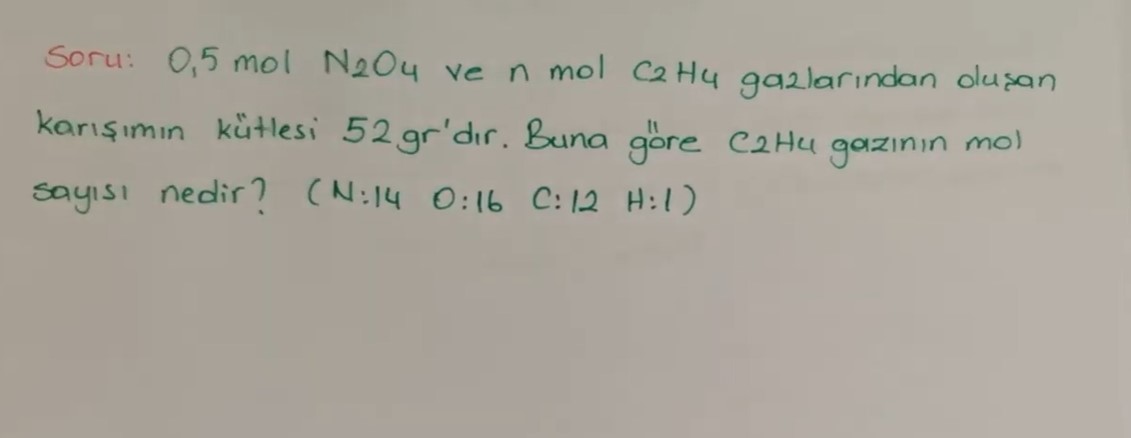 Soru: 0,5 mol N2O4 ve n mol C2H4 gazlarından oluşan
karışımın kütlesi 52gr'dır. Buna göre C2H4 gazının mol
sayısı nedir? (N:14 O:16 C:12 H:1)